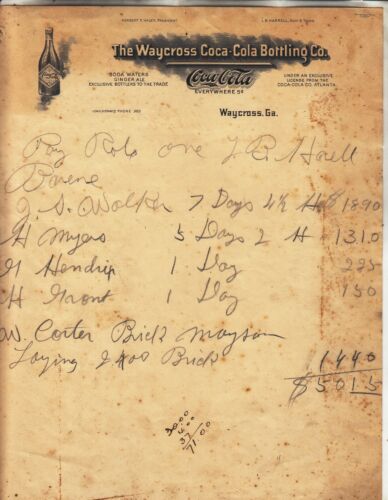 HERBERT F. HALEY, PRESIDENT
L. R. HARRELL, SEC'Y & TREAS.
The Waycross Coca-Cola Bottling Co.
SODA WATERS
GINGER ALE
EXCLUSIVE BOTTLERS TO THE TRADE
Coca-Cola
EVERYWHERE 5¢
UNDER AN EXCLUSIVE
LICENSE FROM THE
COCA-COLA CO. ATLANTA
PHONE
Waycross, Ga.
Pay Role one L R Harell
J. S. Wolker 7 Days 4½ H $ 1890
H Myers 5 Days 2 H 1310
H Hendrix 1 Day 225
H Gront 1 Day 150
W. Corter Brick Mayson
Laying 2400 Brick 1440
$5015
30.00
4.00
37
71.00